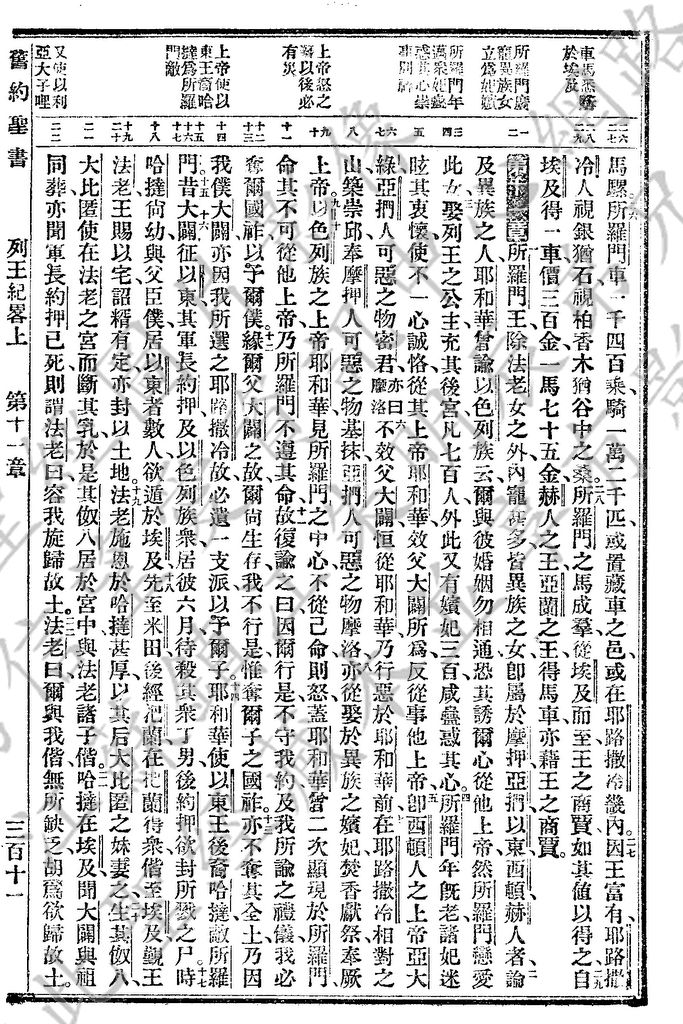 馬驟所羅門車一千四百乘騎一萬二千匹或置藏車之邑或在耶路撒冷畿內因王富有耶路撒
冷人視銀猶石視柏香木猶谷中之桑所羅門之馬成羣從埃及而至王之商賈如其值以得之自
埃及得一車價三百金一馬七十五金赫人之王亞蘭之王得馬車亦藉王之商賈
所羅門王除法老女之外內寵甚多皆異族之女卽屬於摩押亞捫以東西頓赫人者論
及異族之人耶和華曾諭以色列族云爾與彼婚姻勿相通恐其誘爾心從他上帝然所羅門戀愛
此女娶列王之公主充其後宮凡七百人外此又有嬪妃三百咸蠱惑其心所羅門年旣老諸妃迷
眩其衷懷使不一心誠恪從其上帝耶和華效父大闢所爲反從事他上帝卽西頓人之上帝亞大
綠亞捫人可惡之物密君亦曰摩洛不效父大闢恒從耶和華乃行惡於耶和華前在耶路撒冷相對之
山築崇邱奉摩押人可惡之物基抹亞捫人可惡之物摩洛亦從娶於異族之嬪妃焚香獻祭奉厥
上帝以色列族之上帝耶和華見所羅門之中心不從己命則怒蓋耶和華曾二次顯現於所羅門
命其不可從他上帝乃所羅門不遵其命故復諭之曰因爾行是不守我約及我所諭之禮儀我必
奪爾國祚以予爾僕緣爾父大闢之故爾尙生存我不行是惟奪爾子之國祚亦不奪其全土乃因
我僕大闢亦因我所選之耶路撒冷故必遺一支派以予爾子耶和華使以東王後裔哈撻敵所羅
門昔大闢征以東其軍長約押及以色列族衆居彼六月待殺其衆丁男後約押欲封所戮之尸時
哈撻尙幼與父臣僕居以東者數人欲遁於埃及先至米田後經把蘭在把蘭得衆偕至埃及覲王
法老王賜以宅詔糈有定亦封以土地法老施恩於哈撻甚厚以其后大比匿之妹妻之生其伮八
大比匿使在法老之宮而斷其乳於是其伮八居於宮中與法老諸子偕哈撻在埃及聞大闢與祖
同葬亦聞軍長約押已死則謂法老曰容我旋歸故土法老曰爾與我偕無所缺乏胡爲欲歸故土
舊約聖書 列王紀畧上 第十一章 三百十一
所羅門廣
寵異族女
立爲妃嬪
所羅門年
邁衆妃蠱
惑其心崇
事別神
上帝怒之
諭以後必
有災
上帝使以
東王裔哈
撻爲所羅
門敵
又使以利
亞大子哩